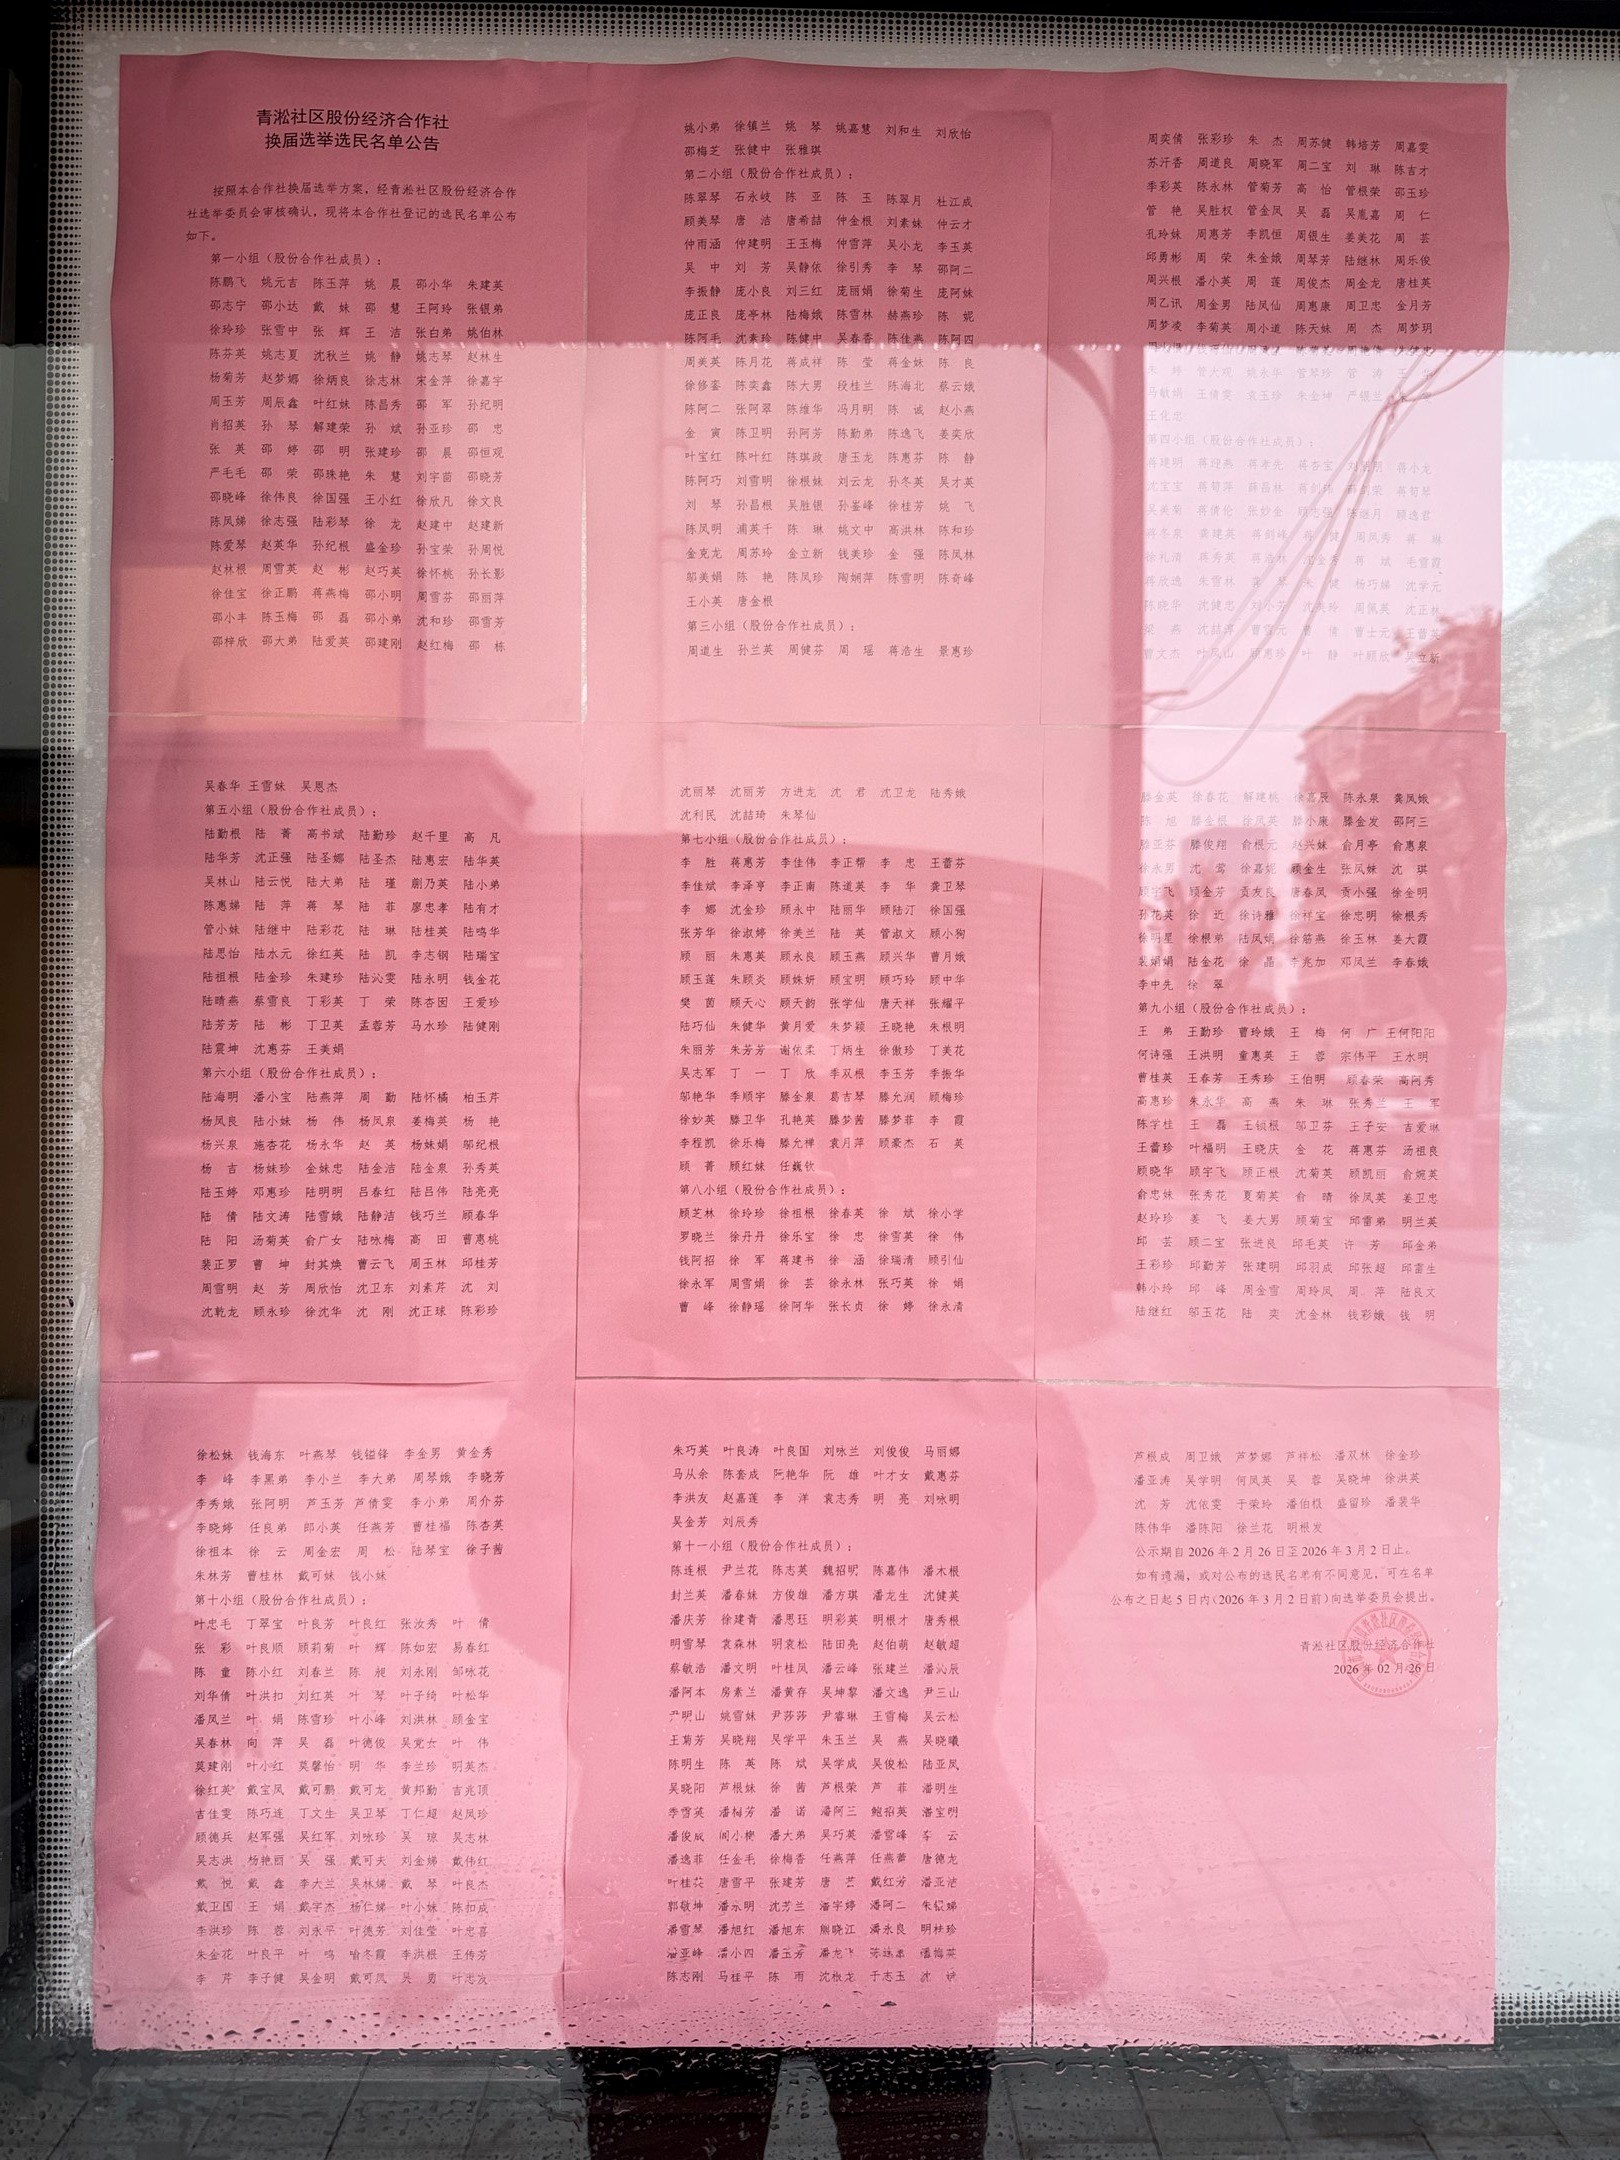 青淞社区股份经济合作社
换届选举选民名单公告
按照本合作社换届选举方案，经青淞社区股份经济合作
社选举委员会审核确认，现将本合作社登记的选民名单公布
如下。
第一小组（股份合作社成员）：
陈鹏飞 姚元吉 陈玉萍 姚晨 邵小华 朱建英
邵志宁 邵小达 戴妹 邵慧 王阿玲 张银弟
徐玲珍 张雪中 张辉 王洁 张白弟 姚伯林
陈芬英 姚志夏 沈秋兰 姚静 姚志琴 赵林生
杨菊芳 赵梦娜 徐炳良 徐志林 宋金萍 徐嘉宇
周玉芳 周辰鑫 叶红妹 陈昌秀 邵军 孙纪明
肖招英 孙琴 解建荣 孙斌 孙亚珍 邵忠
张英 邵婷 邵明 张建珍 邵晨 邵恒观
严毛毛 邵荣 邵珠艳 朱慧 刘宇茵 邵晓芳
邵晓峰 徐伟良 徐国强 王小红 徐欣凡 徐文良
陈凤娣 徐志强 陆彩琴 徐龙 赵建中 赵建新
陈爱琴 赵英华 孙纪根 盛金珍 孙宝荣 孙周悦
赵林根 周雪英 赵彬 赵巧英 徐怀桃 孙长影
徐佳宝 徐正鹏 蒋燕梅 邵小明 周雪芬 邵丽萍
邵小丰 陈玉梅 邵磊 邵小弟 沈和珍 邵雪芳
邵梓欣 邵大弟 陆爱英 邵建刚 赵红梅 邵栋
姚小弟 徐镇兰 姚琴 姚嘉慧 刘和生 刘欣怡
邵梅芝 张健中 张雅琪
第二小组（股份合作社成员）：
陈翠琴 石永岐 陈亚 陈玉 陈翠月 杜江成
顾美琴 唐洁 唐希喆 仲金根 刘素妹 仲云才
仲雨涵 仲建明 王玉梅 仲雪萍 吴小龙 李玉英
吴中 刘芳 吴静依 徐引秀 李琴 邵阿二
李振静 庞小良 刘三红 庞丽娟 徐菊生 庞阿妹
庞正良 庞亭林 陆梅娥 陈雪林 赫燕珍 陈妮
陈阿毛 沈素珍 陈健中 吴春香 陈佳燕 陈阿四
周美英 陈月花 蒋成祥 陈莹 蒋金妹 陈良
徐修銮 陈奕鑫 陈大男 段桂兰 陈海北 蔡云娥
陈阿二 张阿翠 陈维华 冯月明 陈诚 赵小燕
金寅 陈卫明 孙阿芳 陈勤弟 陈逸飞 姜奕欣
叶宝红 陈叶红 陈琪政 唐玉龙 陈惠芬 陈静
陈阿巧 刘雪明 徐根妹 刘云龙 孙冬英 吴才英
刘琴 孙昌根 吴胜银 孙崟峰 徐桂芳 姚飞
陈凤明 浦英千 陈琳 姚文中 高洪林 陈和珍
金克龙 周苏玲 金立新 钱美珍 金强 陈凤林
邬美娟 陈艳 陈凤珍 陶娴萍 陈雪明 陈奇峰
王小英 唐金根
第三小组（股份合作社成员）：
周道生 孙兰英 周健芬 周瑶 蒋浩生 景惠珍
周奕倩 张彩珍 朱杰 周苏健 韩培芳 周嘉雯
苏汗香 周道良 周晓军 周二宝 刘琳 陈吉才
李彩英 陈永林 管菊芳 高怡 管根荣 邵玉珍
管艳 吴胜权 管金凤 吴磊 吴胤嘉 周仁
孔玲妹 周惠芳 李凯恒 周银生 姜美花 周芸
邱勇彬 周荣 朱金娥 周琴芳 陆继林 周乐俊
周兴根 潘小英 周莲 周俊杰 周金龙 唐桂英
周乙讯 周金男 陆凤仙 周惠康 周卫忠 金月芳
周梦凌 李菊英 周小道 陈天妹 周杰 周梦玥
王化忠
第四小组（股份合作社成员）：
吴春华 王雪妹 吴恩杰
第五小组（股份合作社成员）：
陆勤根 陆菁 高书斌 陆勤珍 赵千里 高凡
陆华芳 沈正强 陆圣娜 陆圣杰 陆惠宏 陆华英
吴林山 陆云悦 陆大弟 陆瑾 蒯乃英 陆小弟
陈惠娣 陆萍 蒋琴 陆菲 廖忠孝 陆有才
管小妹 陆继中 陆彩花 陆琳 陆桂英 陆鸣华
陆思怡 陆水元 徐红英 陆凯 李志钢 陆瑞宝
陆祖根 陆金珍 朱建珍 陆沁雯 陆永明 钱金花
陆晴燕 蔡雪良 丁彩英 丁荣 陈杏囡 王爱珍
陆芳芳 陆彬 丁卫英 孟蓉芳 马水珍 陆健刚
陆震坤 沈惠芬 王美娟
第六小组（股份合作社成员）：
陆海明 潘小宝 陆燕萍 周勤 陆怀橘 柏玉芹
杨凤良 陆小妹 杨伟 杨凤泉 姜梅英 杨艳
杨兴泉 施杏花 杨永华 赵英 杨妹娟 邬纪根
杨吉 杨妹珍 金妹忠 陆金洁 陆金泉 孙秀英
陆玉婷 邓惠珍 陆明明 吕春红 陆吕伟 陆亮亮
陆倩 陆文涛 陆雪娥 陆静洁 钱巧兰 顾春华
陆阳 汤菊英 俞广女 陆咏梅 高田 曹惠桃
裴正罗 曹坤 封其焕 曹云飞 周玉林 邱桂芳
周雪明 赵芳 周欣怡 沈卫东 刘素芹 沈刘
沈乾龙 顾永珍 徐沈华 沈刚 沈正球 陈彩珍
沈丽琴 沈丽芳 方进龙 沈君 沈卫龙 陆秀娥
沈利民 沈喆琦 朱琴仙
第七小组（股份合作社成员）：
李胜 蒋惠芳 李佳伟 李正帮 李忠 王蕾芬
李佳斌 李泽亨 李正南 陈道英 李华 龚卫琴
李娜 沈金珍 顾永中 陆丽华 顾陆汀 徐国强
张芳华 徐淑婷 徐美兰 陆英 管淑文 顾小狗
顾丽 朱惠英 顾永良 顾玉燕 顾兴华 曹月娥
顾玉莲 朱顾炎 顾姝妍 顾宝明 顾巧玲 顾中华
樊茵 顾天心 顾天韵 张学仙 唐天祥 张耀平
陆巧仙 朱健华 黄月爱 朱梦颖 王晓艳 朱根明
朱丽芳 朱芳芳 谢依柔 丁炳生 徐傲珍 丁美花
吴志军 丁一 丁欣 季双根 李玉芳 李振华
邬艳华 季顺宇 滕金泉 葛吉琴 滕允润 顾梅珍
徐妙英 滕卫华 孔艳英 滕梦茜 滕梦菲 李霞
李程凯 徐乐梅 滕允禅 袁月萍 顾豪杰 石英
顾菁 顾红妹 任巍钦
第八小组（股份合作社成员）：
顾芝林 徐玲珍 徐祖根 徐春英 徐斌 徐小学
罗晓兰 徐丹丹 徐乐宝 徐忠 徐雪英 徐伟
钱阿招 徐军 蒋建书 徐涵 徐瑞清 顾引仙
徐永军 周雪娟 徐芸 徐永林 张巧英 徐娟
曹峰 徐静瑶 徐阿华 张长贞 徐婷 徐永清
滕金英 徐春花 解建桃 徐嘉辰 陈永泉 龚凤娥
陈旭 滕金根 徐凤英 滕小康 滕金发 邵阿三
滕亚芬 滕俊翔 俞根元 赵兴妹 俞月亭 俞惠泉
徐永男 沈莺 徐嘉妮 顾金生 张凤妹 沈琪
顾宇飞 顾金芳 贡友良 唐春凤 贡小强 徐金明
孙花英 徐近 徐诗雅 徐祥宝 徐忠明 徐根秀
徐明星 徐根弟 陆凤娟 徐筋燕 徐玉林 姜大霞
裴娟娟 陆金花 徐晶 李兆加 邓凤兰 李春娥
李中先 徐翠
第九小组（股份合作社成员）：
王弟 王勤珍 曹玲娥 王梅 何广 王何阳阳
何诗强 王洪明 童惠英 王蓉 宗伟平 王水明
曹桂英 王春芳 王秀珍 王伯明 顾春荣 高阿秀
高惠珍 朱永华 高燕 朱琳 张秀兰 王军
陈学桂 王磊 王锁根 邬卫芬 王子安 吉爱琳
王蕾珍 叶福明 王晓庆 金花 蒋惠芬 汤祖良
顾晓华 顾宇飞 顾正根 沈菊英 顾凯丽 俞婉英
俞忠妹 张秀花 夏菊英 俞晴 徐凤英 姜卫忠
赵玲珍 姜飞 姜大男 顾菊宝 邱雷弟 明兰英
邱芸 顾二宝 张进良 邱毛英 许芳 邱金弟
王彩珍 邱勤芳 张建明 邱羽成 邱张超 邱雷生
韩小玲 邱峰 周金雪 周玲凤 周萍 陆良文
陆继红 邬玉花 陆奕 沈金林 钱彩娥 钱明
徐松妹 钱海东 叶燕琴 钱镒锋 李金男 黄金秀
李峰 李黑弟 李小兰 李大弟 周琴娥 李晓芳
李秀娥 张阿明 芦玉芳 芦倩雯 李小弟 周介芬
李晓婷 任良弟 郎小英 任燕芳 曹桂福 陈杏英
徐祖本 徐云 周金宏 周松 陆琴宝 徐子茜
朱林芳 曹桂林 戴可妹 钱小妹
第十小组（股份合作社成员）：
叶忠毛 丁翠宝 叶良芳 叶良红 张汝秀 叶倩
张彩 叶良顺 顾莉菊 叶辉 陈如宏 易春红
陈童 陈小红 刘春兰 陈昶 刘永刚 邹咏花
刘华倩 叶洪扣 刘红英 叶琴 叶子绮 叶松华
潘凤兰 叶娟 陈雪珍 叶小峰 刘洪林 顾金宝
吴春林 向萍 吴磊 叶德俊 吴党女 叶伟
莫建刚 叶小红 莫馨怡 明华 李兰珍 明英杰
徐红英 戴宝凤 戴可鹏 戴可龙 黄邦勤 吉兆顶
吉佳雯 陈巧连 丁文生 吴卫琴 丁仁超 赵凤珍
顾德兵 赵军强 吴红军 刘咏珍 吴琼 吴志林
吴志洪 杨艳丽 吴强 戴可夫 刘金娣 戴伟红
戴悦 戴鑫 李大兰 吴林娣 戴琴 叶良杰
戴卫国 王娟 戴宇杰 杨仁娣 叶小妹 陈扣成
李洪珍 陈蓉 刘永平 叶德芳 刘佳莹 叶忠喜
朱金花 叶良平 叶鸣 喻冬霞 李洪根 王传芳
李芹 李子健 吴金明 戴可凤 吴勇 叶忠友
朱巧英 叶良涛 叶良国 刘咏兰 刘俊俊 马丽娜
马从余 陈套成 阮艳华 阮雄 叶才女 戴惠芬
李洪友 赵嘉莲 李洋 袁志秀 明亮 刘咏明
吴金芳 刘辰秀
第十一小组（股份合作社成员）：
陈连根 尹兰花 陈志英 魏招明 陈嘉伟 潘木根
封兰英 潘春妹 方俊雄 潘方琪 潘龙生 沈健英
潘庆芳 徐建青 潘思珏 明彩英 明根才 唐秀根
明雪琴 袁森林 明袁松 陆田亮 赵伯萌 赵敏超
蔡敏浩 潘文明 叶桂凤 潘云峰 张建兰 潘沁辰
潘阿本 房素兰 潘黄存 吴坤黎 潘文逸 尹三山
尹明山 姚雪妹 尹莎莎 尹睿琳 王雪梅 吴云松
王菊芳 吴晓翔 吴学平 朱玉兰 吴燕 吴晓曦
陈明生 陈英 陈斌 吴学成 吴俊松 陆亚凤
吴晓阳 芦根妹 徐茜 芦根荣 芦菲 潘明生
季雪英 潘梅芳 潘诺 潘阿三 鲍招英 潘宝明
潘俊成 闻小梗 潘大弟 吴巧英 潘雪峰 李云
潘逸菲 任金毛 徐梅香 任燕萍 任燕蕾 唐德龙
叶桂英 唐雪平 张建芳 唐艺 戴红芳 潘亚洁
郭敬坤 潘永明 沈芳兰 潘宇婷 潘阿二 朱银娣
潘雪琴 潘旭红 潘旭东 熊晓江 潘永良 明桂珍
潘亚峰 潘小四 潘玉芳 潘龙飞 潘梅英
陈志刚 马桂平 陈雨 沈根龙 于志玉 沈
芦根成 周卫娥 芦梦娜 芦祥松 潘双林 徐金珍
潘亚涛 吴学明 何凤英 吴蓉 吴晓坤 徐洪英
沈芳 沈依雯 于荣玲 潘伯根 盛留珍 潘裴华
陈伟华 潘陈阳 徐兰花 明根发
公示期自2026年2月26日至2026年3月2日止。
如有遗漏，或对公布的选民名单有不同意见，可在名单
公布之日起5日内（2026年3月2日前）向选举委员会提出。
青淞社区股份经济合作社
2026年02月26日